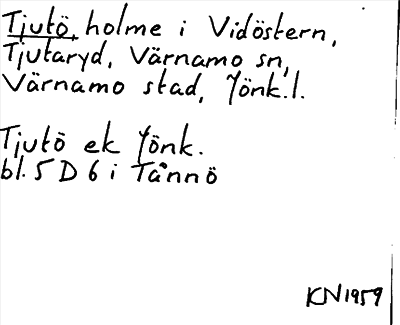 Tjutö, holme i Vidöstern,
Tjutaryd, Värnamo sn,
Värnamo stad, Jönk.l.
Tjutö ek Jönk.
bl. 5 D 6 i Tånnö
KN1959